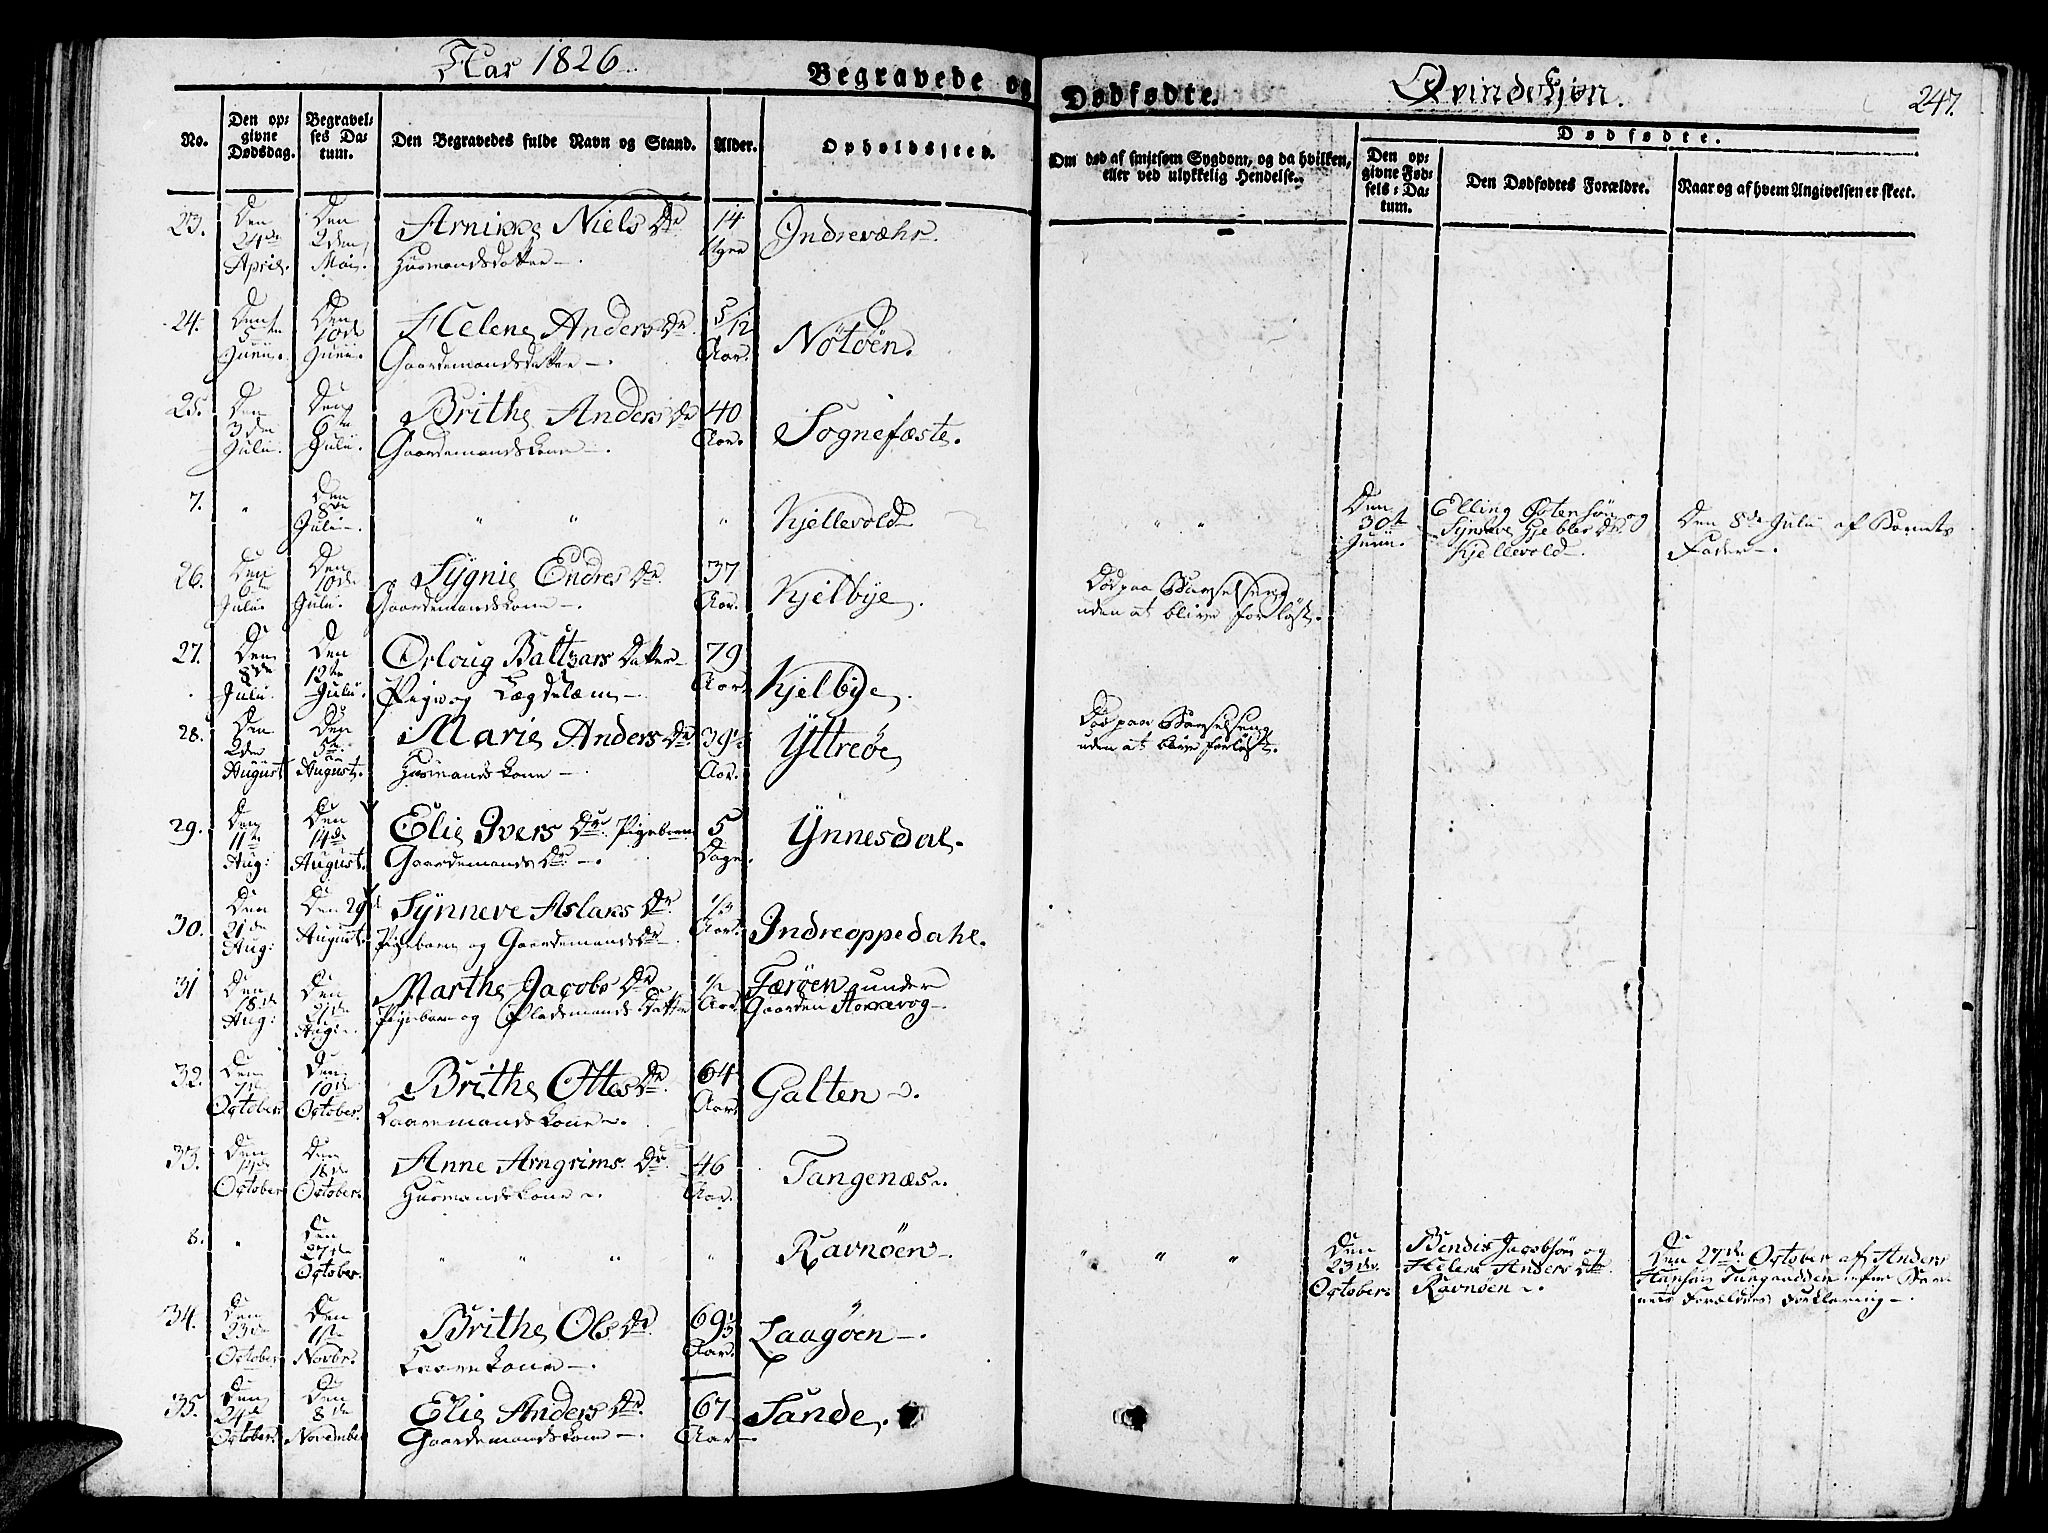 Aar 1826.
Begravede og Dødfødte.
Qvindekjøn.
247.
No.
Den opgivne Dødsdag.
Begravelses Datum.
Den Begravedes fulde Navn og Stand.
Alder.
Opholdssted.
Om død af smitsom Sygdom, og da hvilken, eller ved ulykkelig Hendelse.
Dødfødte.
Den opgivne Fødsels-Datum.
Den Dødfødtes Forældre.
Naar og af hvem Angivelsen er skeet.
23. Den 24de April. Den 2den Mai. Arnikke Niels Dr Huusmandsdatter 14 Uger Indrevæhr.
24. Den 5te Junii. Den 10de Junii. Helene Anders Dr Gaardemandsdatter 5/12 Aar. Nötøen.
25. Den 3die Julii. Den 6te Julii. Brithe Anders Dr Gaardemandskone 40 Aar. Sognefæste.
7. " Den 8de Julii. " " " Kjellevold " " Den 30te Junii. Elling Ostensøn og Synneve Gjebles Dr. Kjellevold. Den 8de Julii af Barnets Fader.
26. Den 6te Julii. Den 10de Julii. Sygnie Endres Dr. Gaardemandskone 37 Aar. Kjelbye. Død paa Barselseng uden at blive forløst.
27. Den 8de Julii. Den 12te Julii. Orloug Baltzars Datter Pige og Lægdslæm 79 Aar. Kjelbye.
28. Den 2den August Den 5te August. Marie Anders Dr Huusmandskone 39½ Aar. Yttreøe Død paa Barselseng uden at blive forløst.
29. Den 11te Aug: Den 14de August. Elie Ivers Dr. Pigebarn Gaardemands Dr. 5 Dage. Ynnesdal.
30. Den 21de Aug: Den 29de August. Synneve Aslaks Dr. Pigebarn og Gaardemands Dr Aar. Indreoppedahl.
31 Den 18de Aug: Den Aug: Marthe Jacobs Dr Pigebarn og Pladsmands Datter ½ Aar. Færøen under Gaarden
32. Den 7de October Den 10de October. Brithe Ottes Dr. Kaaremandskone 64 Aar. Galten
33. Den 14de October Den 16de October. Anne Arngrims Dr. Huusmandskone 46 Aar. Tangenæs.
8. " Den 27de October. " " " " Ravnøen " " " Den 23de October. Bendix Jacobsøn og Helene Anders Dtr. Ravnøen. Den 27de October af Anders Hansøn efter Barnets Forældres Forklaring.
34. Den 23de October Den 1ste Novbr. Brithe Ols Dr. Kaarekone 69⅓ Aar. Laagøen.
35. Den 24de October. Den 8de November Elie Anders Dr. Gaardemandskone 67 Aar Sande.